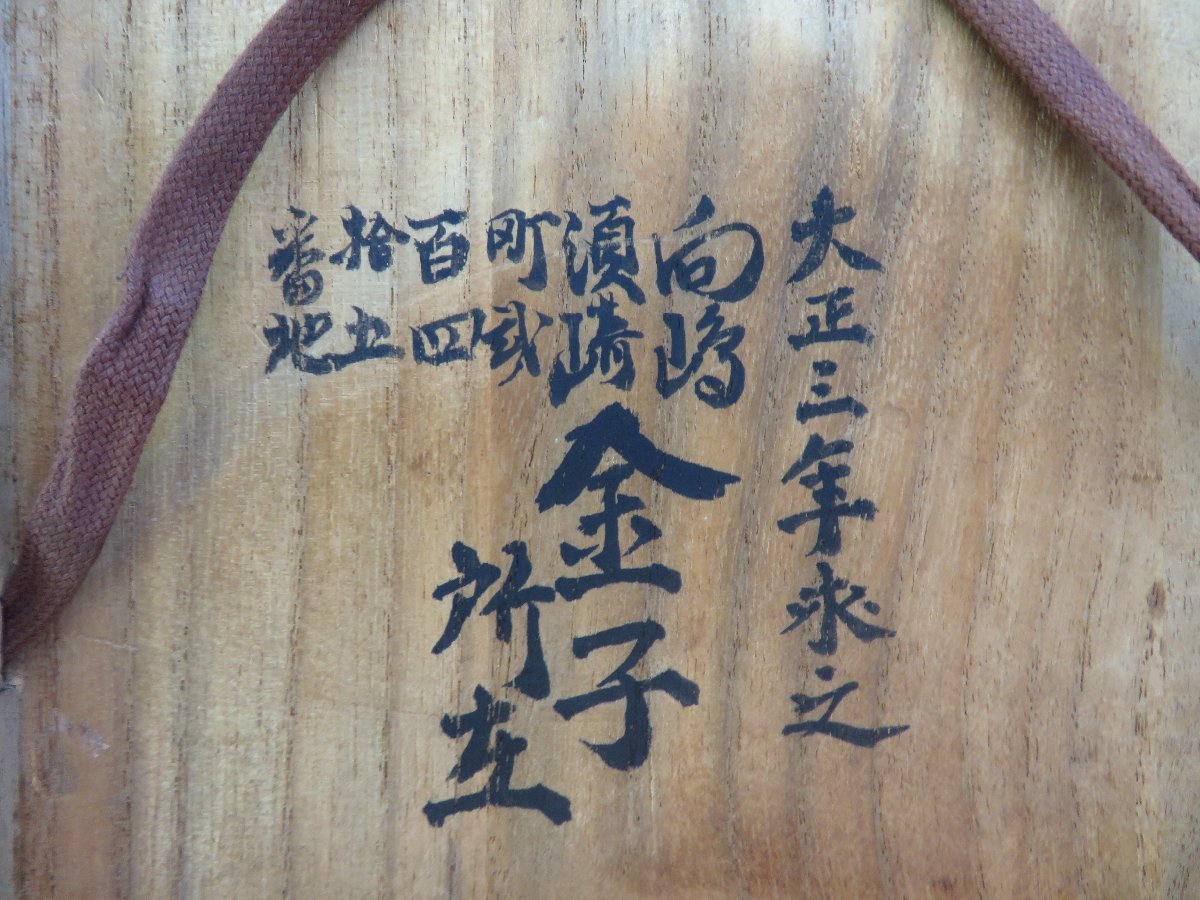 大正三年求之
向嶋
須﨑
町貮
百四
拾五
番地
金子
所有